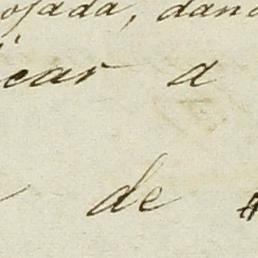 ojada, dand
car a
de